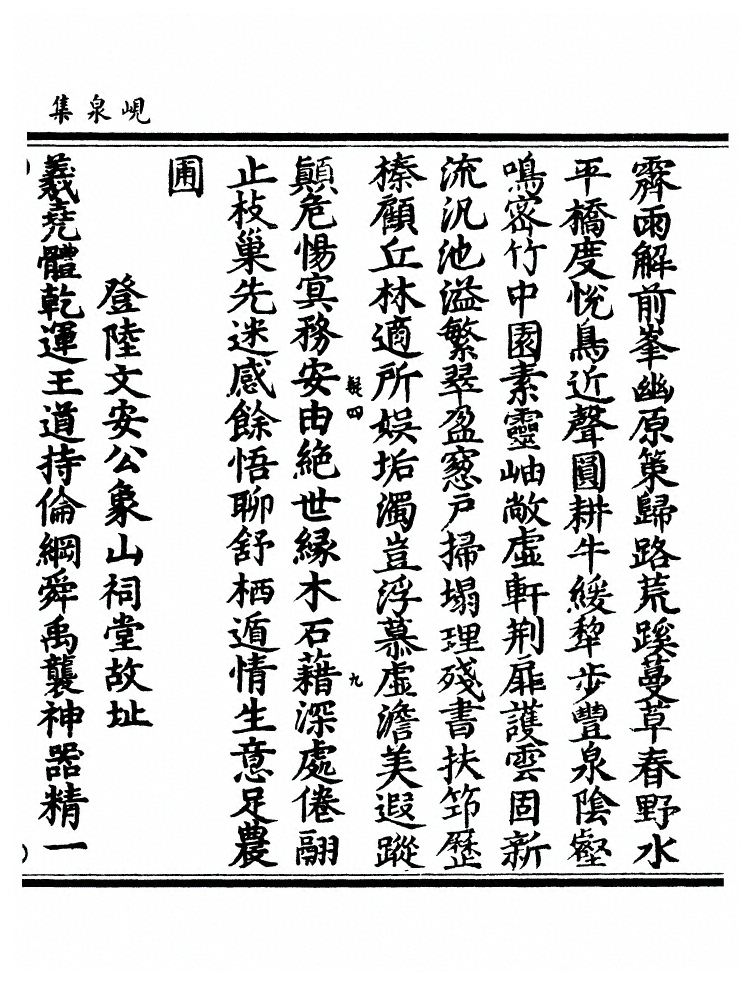 峴泉集
霽雨解前峯幽原策歸路荒蹊蔓草春野水
平橋度悅鳥近聲圓耕牛緩犂步豐泉陰壑
鳴密竹中園素靈岫敞虛軒荆扉護雲固新
流汎池溢繁翠盈窓戶掃塌理殘書扶筇歷
榛顧丘林適所娛垢濁豈浮慕虛澹美遐蹤
疑四
九
顛危惕寘務安由絶世緣木石藉深處倦翮
止枝巢先迷感餘悟聊舒栖遁情生意足農
圃
登陸文安公象山祠堂故址
羲堯體乾運王道持倫綱舜禹襲神器精一